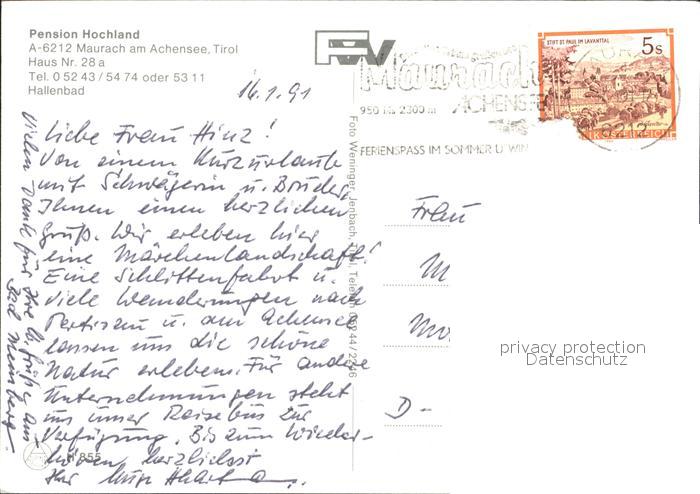 Pension Hochland
A-6212 Maurach am Achensee, Tirol
Haus Nr. 28 a
Tel. 0 52 43 / 54 74 oder 53 11
Hallenbad
16.1.91
Liebe Frau Hinz!
Von einem Kurzurlaub
mit Schwägerin u. Bruder
Ihnen einen herzlichen
Gruß. Wir erleben hier
eine Märchenlandschaft!
Eine Schlittenfahrt u.
viele Wanderungen nach
Pertisau u. am Achensee
lassen uns die schöne
Natur erleben. Für andere
Unternehmungen steht
uns unser Reisebus zur
Verfügung. Bis zum Wieder-
hören herzlichst
Ihr
Vielen Dank für Ihre Grüße aus
Bad Meinberg.
H 855
Foto Weninger, Jenbach, Tirol, Telefon 05244/2246
FVV
Maurach
950 bis 2300 m ACHENSEE
FERIENSPASS IM SOMMER U. WIN
STIFT ST. PAUL IM LAVANTTAL
5s
REPUBLIK ÖSTERREICH
6212
Frau
M
D-
privacy protection
Datenschutz